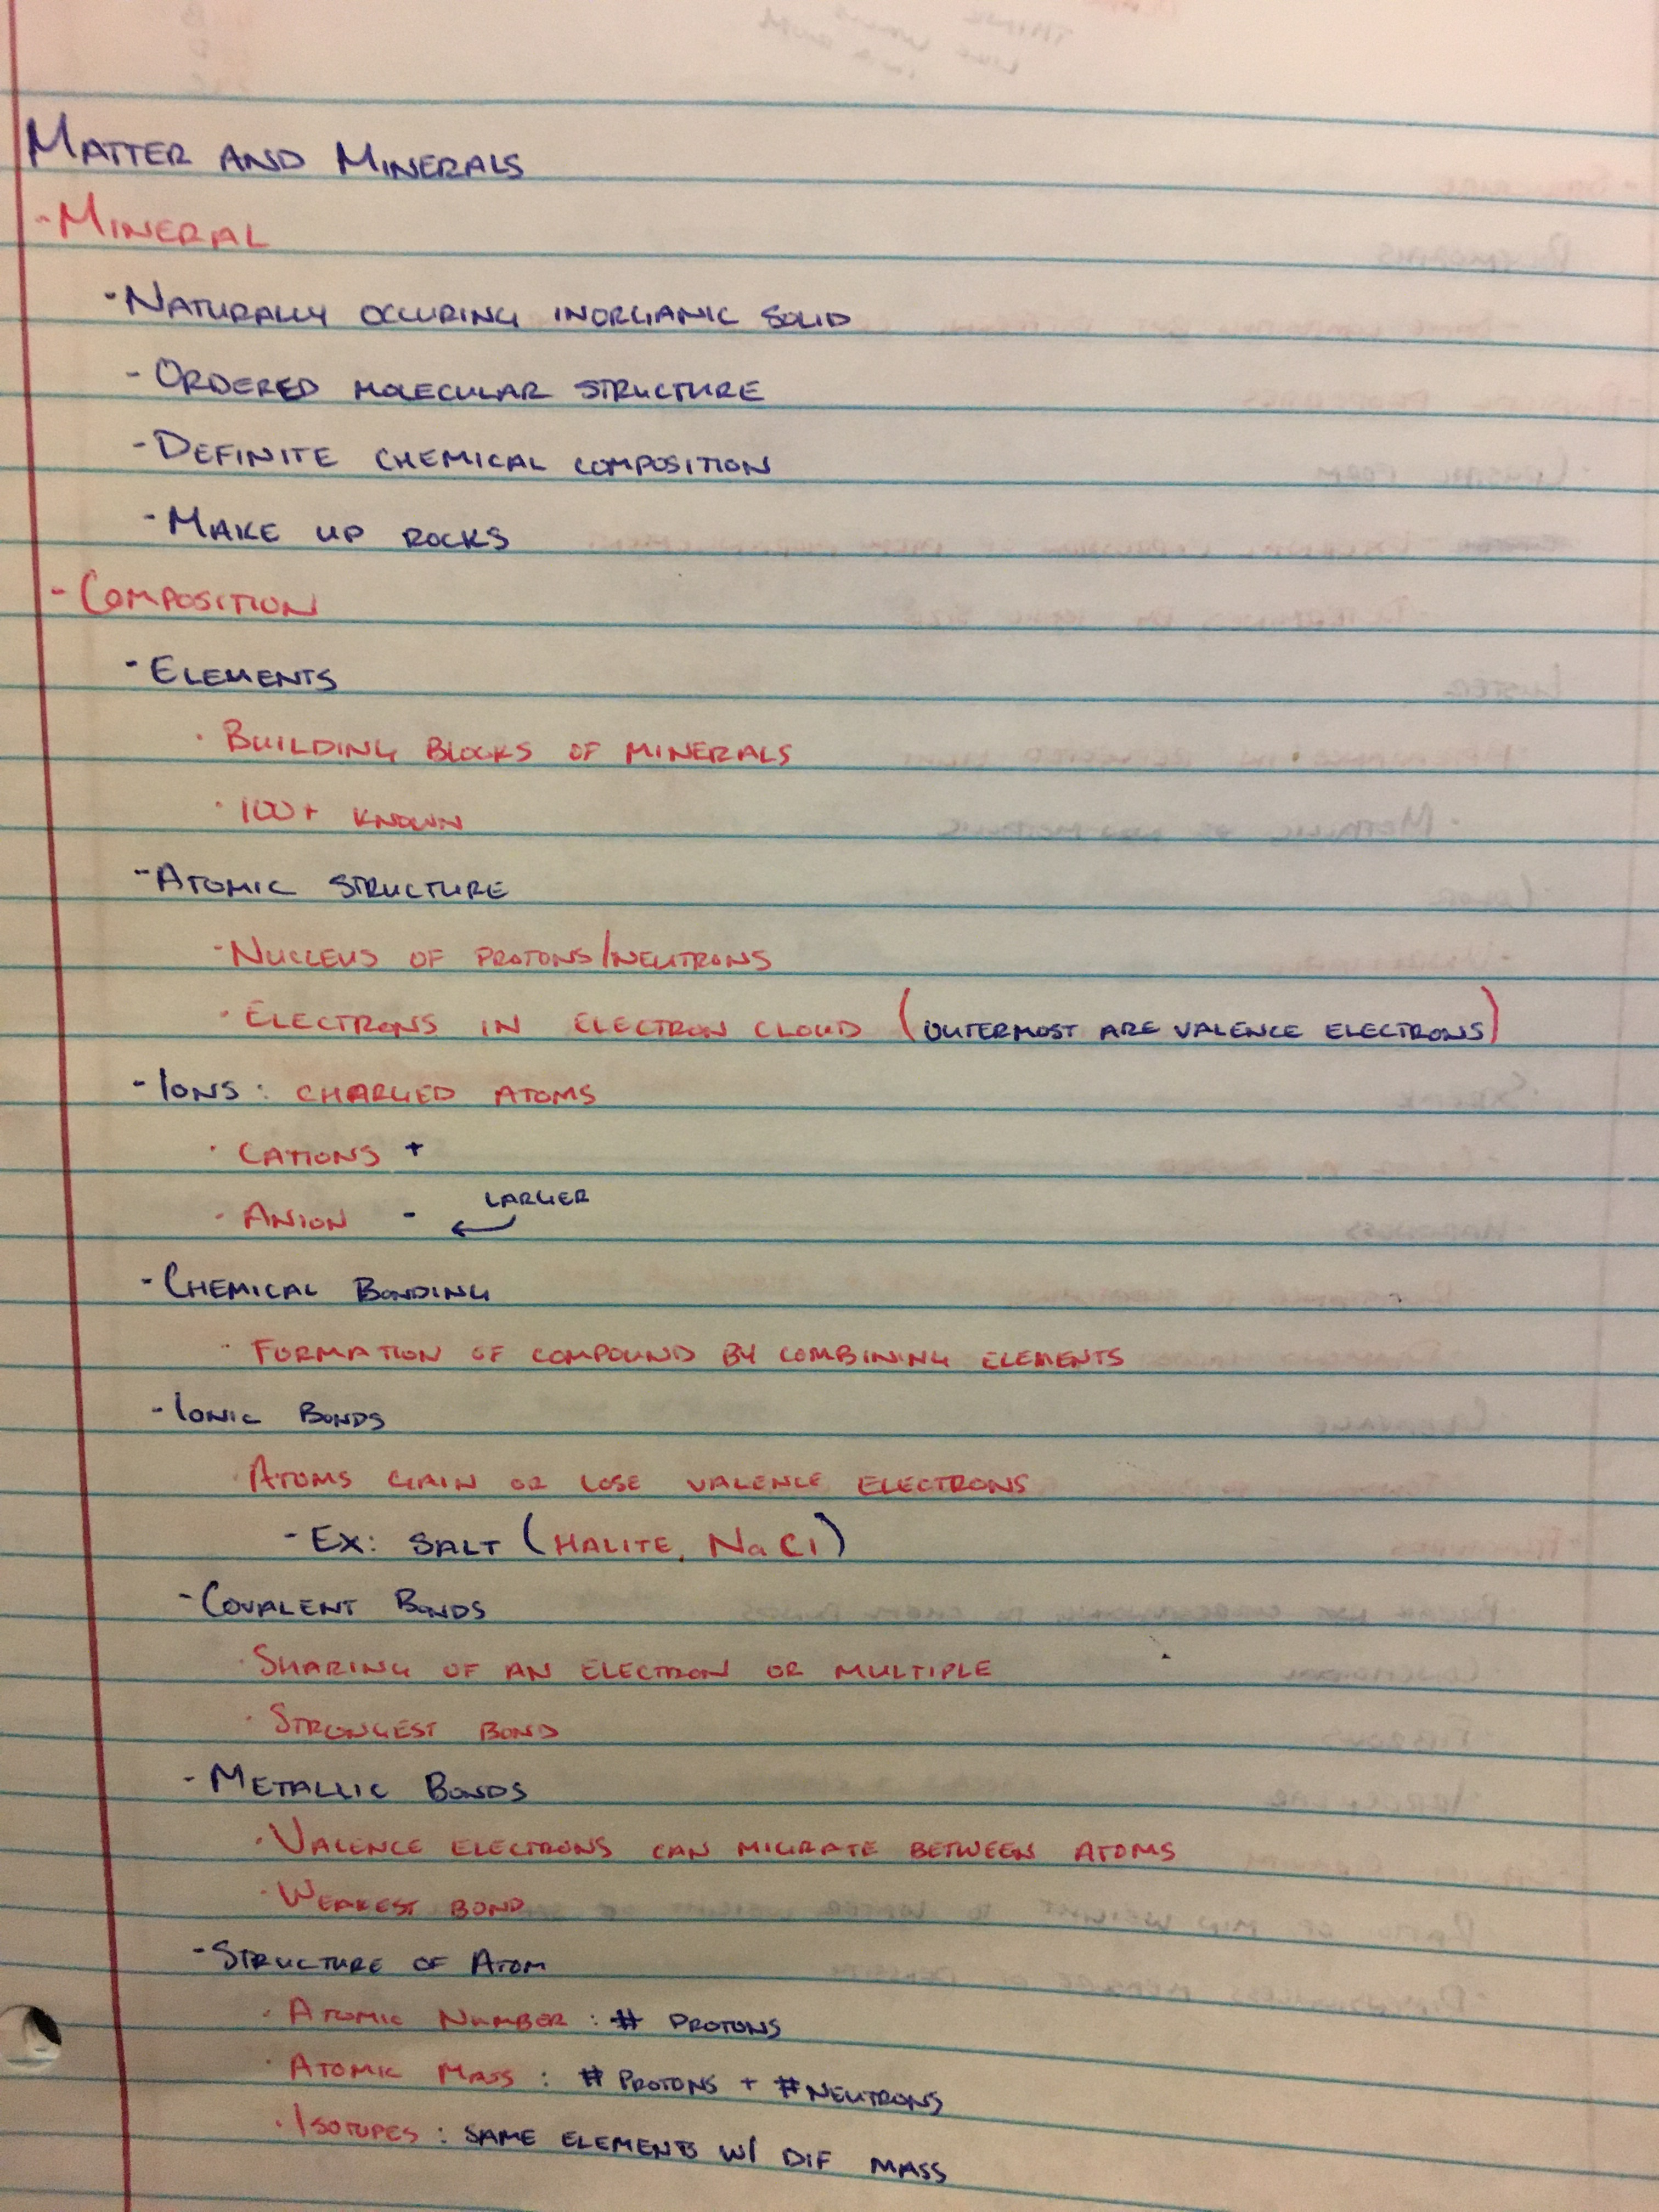 MATTER AND MINERALS
-MINERAL
-NATURALLY OCCURING INORGANIC SOLID
-ORDERED MOLECULAR STRUCTURE
-DEFINITE CHEMICAL COMPOSITION
-MAKE UP ROCKS
-COMPOSITION
-ELEMENTS
·BUILDING BLOCKS OF MINERALS
·100+ KNOWN
-ATOMIC STRUCTURE
-NUCLEUS OF PROTONS/NEUTRONS
·ELECTRONS IN ELECTRON CLOUD (OUTERMOST ARE VALENCE ELECTRONS)
-IONS: CHARGED ATOMS
·CATIONS +
·ANION - ← LARGER
-CHEMICAL BONDING
·FORMATION OF COMPOUND BY COMBINING ELEMENTS
-IONIC BONDS
·ATOMS GAIN OR LOSE VALENCE ELECTRONS
-EX: SALT (HALITE, NaCl)
-COVALENT BONDS
·SHARING OF AN ELECTRON OR MULTIPLE
·STRONGEST BOND
-METALLIC BONDS
·VALENCE ELECTRONS CAN MIGRATE BETWEEN ATOMS
·WEAKEST BOND
-STRUCTURE OF ATOM
·ATOMIC NUMBER: # PROTONS
·ATOMIC MASS: # PROTONS + # NEUTRONS
·ISOTOPES: SAME ELEMENTS W/ DIF MASS